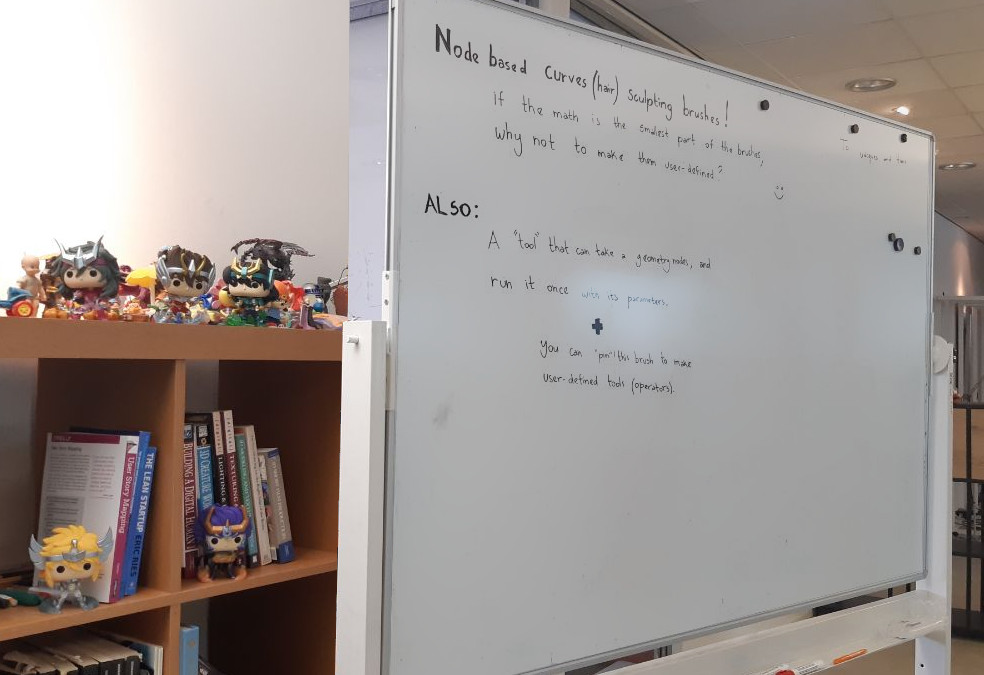 Node based curves (hair) sculpting brushes!
If the math is the smallest part of the brushes,
why not to make them user-defined?
ALSO:
A "tool" that can take a geometry nodes, and
run it once with its parameters.
+
you can "pin" this brush to make
user-defined tools (operators).
User Story Mapping
THE LEAN STARTUP ERIC RIES
BUILDING A DIGITAL HUMAN
3D CREATURE
LIGHTING &
TEXTURING